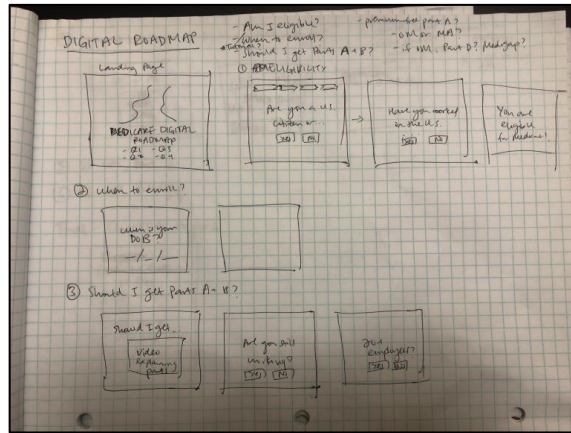 DIGITAL ROADMAP
- Am I eligible?
- When to enroll?
- Should I get Parts A + B?
Part A?
- OM or MA?
- if OM, Part D? Medigap?
Landing Page
MEDICARE DIGITAL
ROADMAP
- Q1 - Q3
- Q2 - Q4
① ELIGIBILITY
Are you a U.S.
citizen or
Yes No
Have you worked
in the U.S.
No
You are
eligible
for Medicare!
② When to enroll?
When is your
DOB?
_/_/_
③ Should I get Parts A + B?
Should I get
Video
explaining
parts
Are you still
working?
Yes No
employer?
Yes No